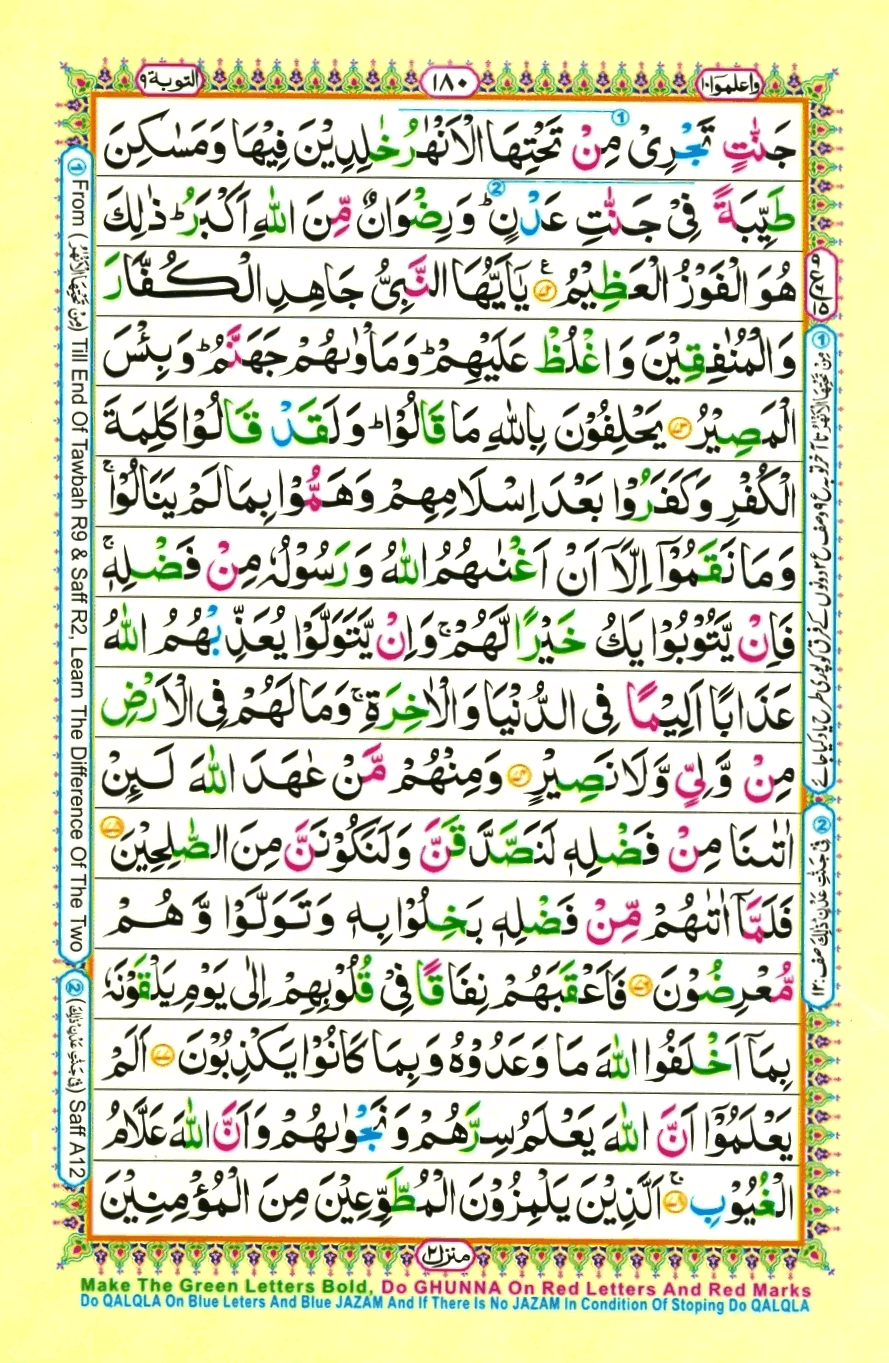 واعلموا ۱۰
۱۸۰
التوبة ۹
جَنّٰتٍ تَجْرِیْ مِنْ تَحْتِهَا الْاَنْهٰرُ خٰلِدِیْنَ فِیْهَا وَمَسٰكِنَ
طَیِّبَةً فِیْ جَنّٰتِ عَدْنٍ ؕ وَرِضْوَانٌ مِّنَ اللّٰهِ اَكْبَرُ ؕ ذٰلِكَ
هُوَ الْفَوْزُ الْعَظِیْمُ ۟ یٰۤاَیُّهَا النَّبِیُّ جَاهِدِ الْكُفَّارَ
وَالْمُنٰفِقِیْنَ وَاغْلُظْ عَلَیْهِمْ ؕ وَمَاْوٰىهُمْ جَهَنَّمُ ؕ وَبِئْسَ
الْمَصِیْرُ ۟ یَحْلِفُوْنَ بِاللّٰهِ مَا قَالُوْا ؕ وَلَقَدْ قَالُوْا كَلِمَةَ
الْكُفْرِ وَكَفَرُوْا بَعْدَ اِسْلَامِهِمْ وَهَمُّوْا بِمَا لَمْ یَنَالُوْا ۚ
وَمَا نَقَمُوْۤا اِلَّاۤ اَنْ اَغْنٰىهُمُ اللّٰهُ وَرَسُوْلُهٗ مِنْ فَضْلِهٖ ۚ
فَاِنْ یَّتُوْبُوْا یَكُ خَیْرًا لَّهُمْ ۚ وَاِنْ یَّتَوَلَّوْا یُعَذِّبْهُمُ اللّٰهُ
عَذَابًا اَلِیْمًا فِی الدُّنْیَا وَالْاٰخِرَةِ ۚ وَمَا لَهُمْ فِی الْاَرْضِ
مِنْ وَّلِیٍّ وَّلَا نَصِیْرٍ ۟ وَمِنْهُمْ مَّنْ عٰهَدَ اللّٰهَ لَىِٕنْ
اٰتٰىنَا مِنْ فَضْلِهٖ لَنَصَّدَّقَنَّ وَلَنَكُوْنَنَّ مِنَ الصّٰلِحِیْنَ ۟
فَلَمَّاۤ اٰتٰىهُمْ مِّنْ فَضْلِهٖ بَخِلُوْا بِهٖ وَتَوَلَّوْا وَّهُمْ
مُّعْرِضُوْنَ ۟ فَاَعْقَبَهُمْ نِفَاقًا فِیْ قُلُوْبِهِمْ اِلٰی یَوْمِ یَلْقَوْنَهٗ
بِمَاۤ اَخْلَفُوا اللّٰهَ مَا وَعَدُوْهُ وَبِمَا كَانُوْا یَكْذِبُوْنَ ۟ اَلَمْ
یَعْلَمُوْۤا اَنَّ اللّٰهَ یَعْلَمُ سِرَّهُمْ وَنَجْوٰىهُمْ وَاَنَّ اللّٰهَ عَلَّامُ
الْغُیُوْبِ ۟ۚ اَلَّذِیْنَ یَلْمِزُوْنَ الْمُطَّوِّعِیْنَ مِنَ الْمُؤْمِنِیْنَ
منزل ۲
① From (مِنْ تَحْتِهَا الْاَنْهٰرُ) Till End Of Tawbah R9 & Saff R2, Learn The Difference Of The Two
② (فِیْ جَنّٰتِ عَدْنٍ ذٰلِكَ) Saff A12
① مِنْ تَحْتِهَا الْاَنْهٰرُ تا آخر توبہ ع ۹ و صف ع ۲ دونوں کے فرق کو پوری طرح یاد کیا جائے
② فِیْ جَنّٰتِ عَدْنٍ ذٰلِكَ صف: ۱۲
Make The Green Letters Bold, Do GHUNNA On Red Letters And Red Marks
Do QALQLA On Blue Leters And Blue JAZAM And If There Is No JAZAM In Condition Of Stoping Do QALQLA